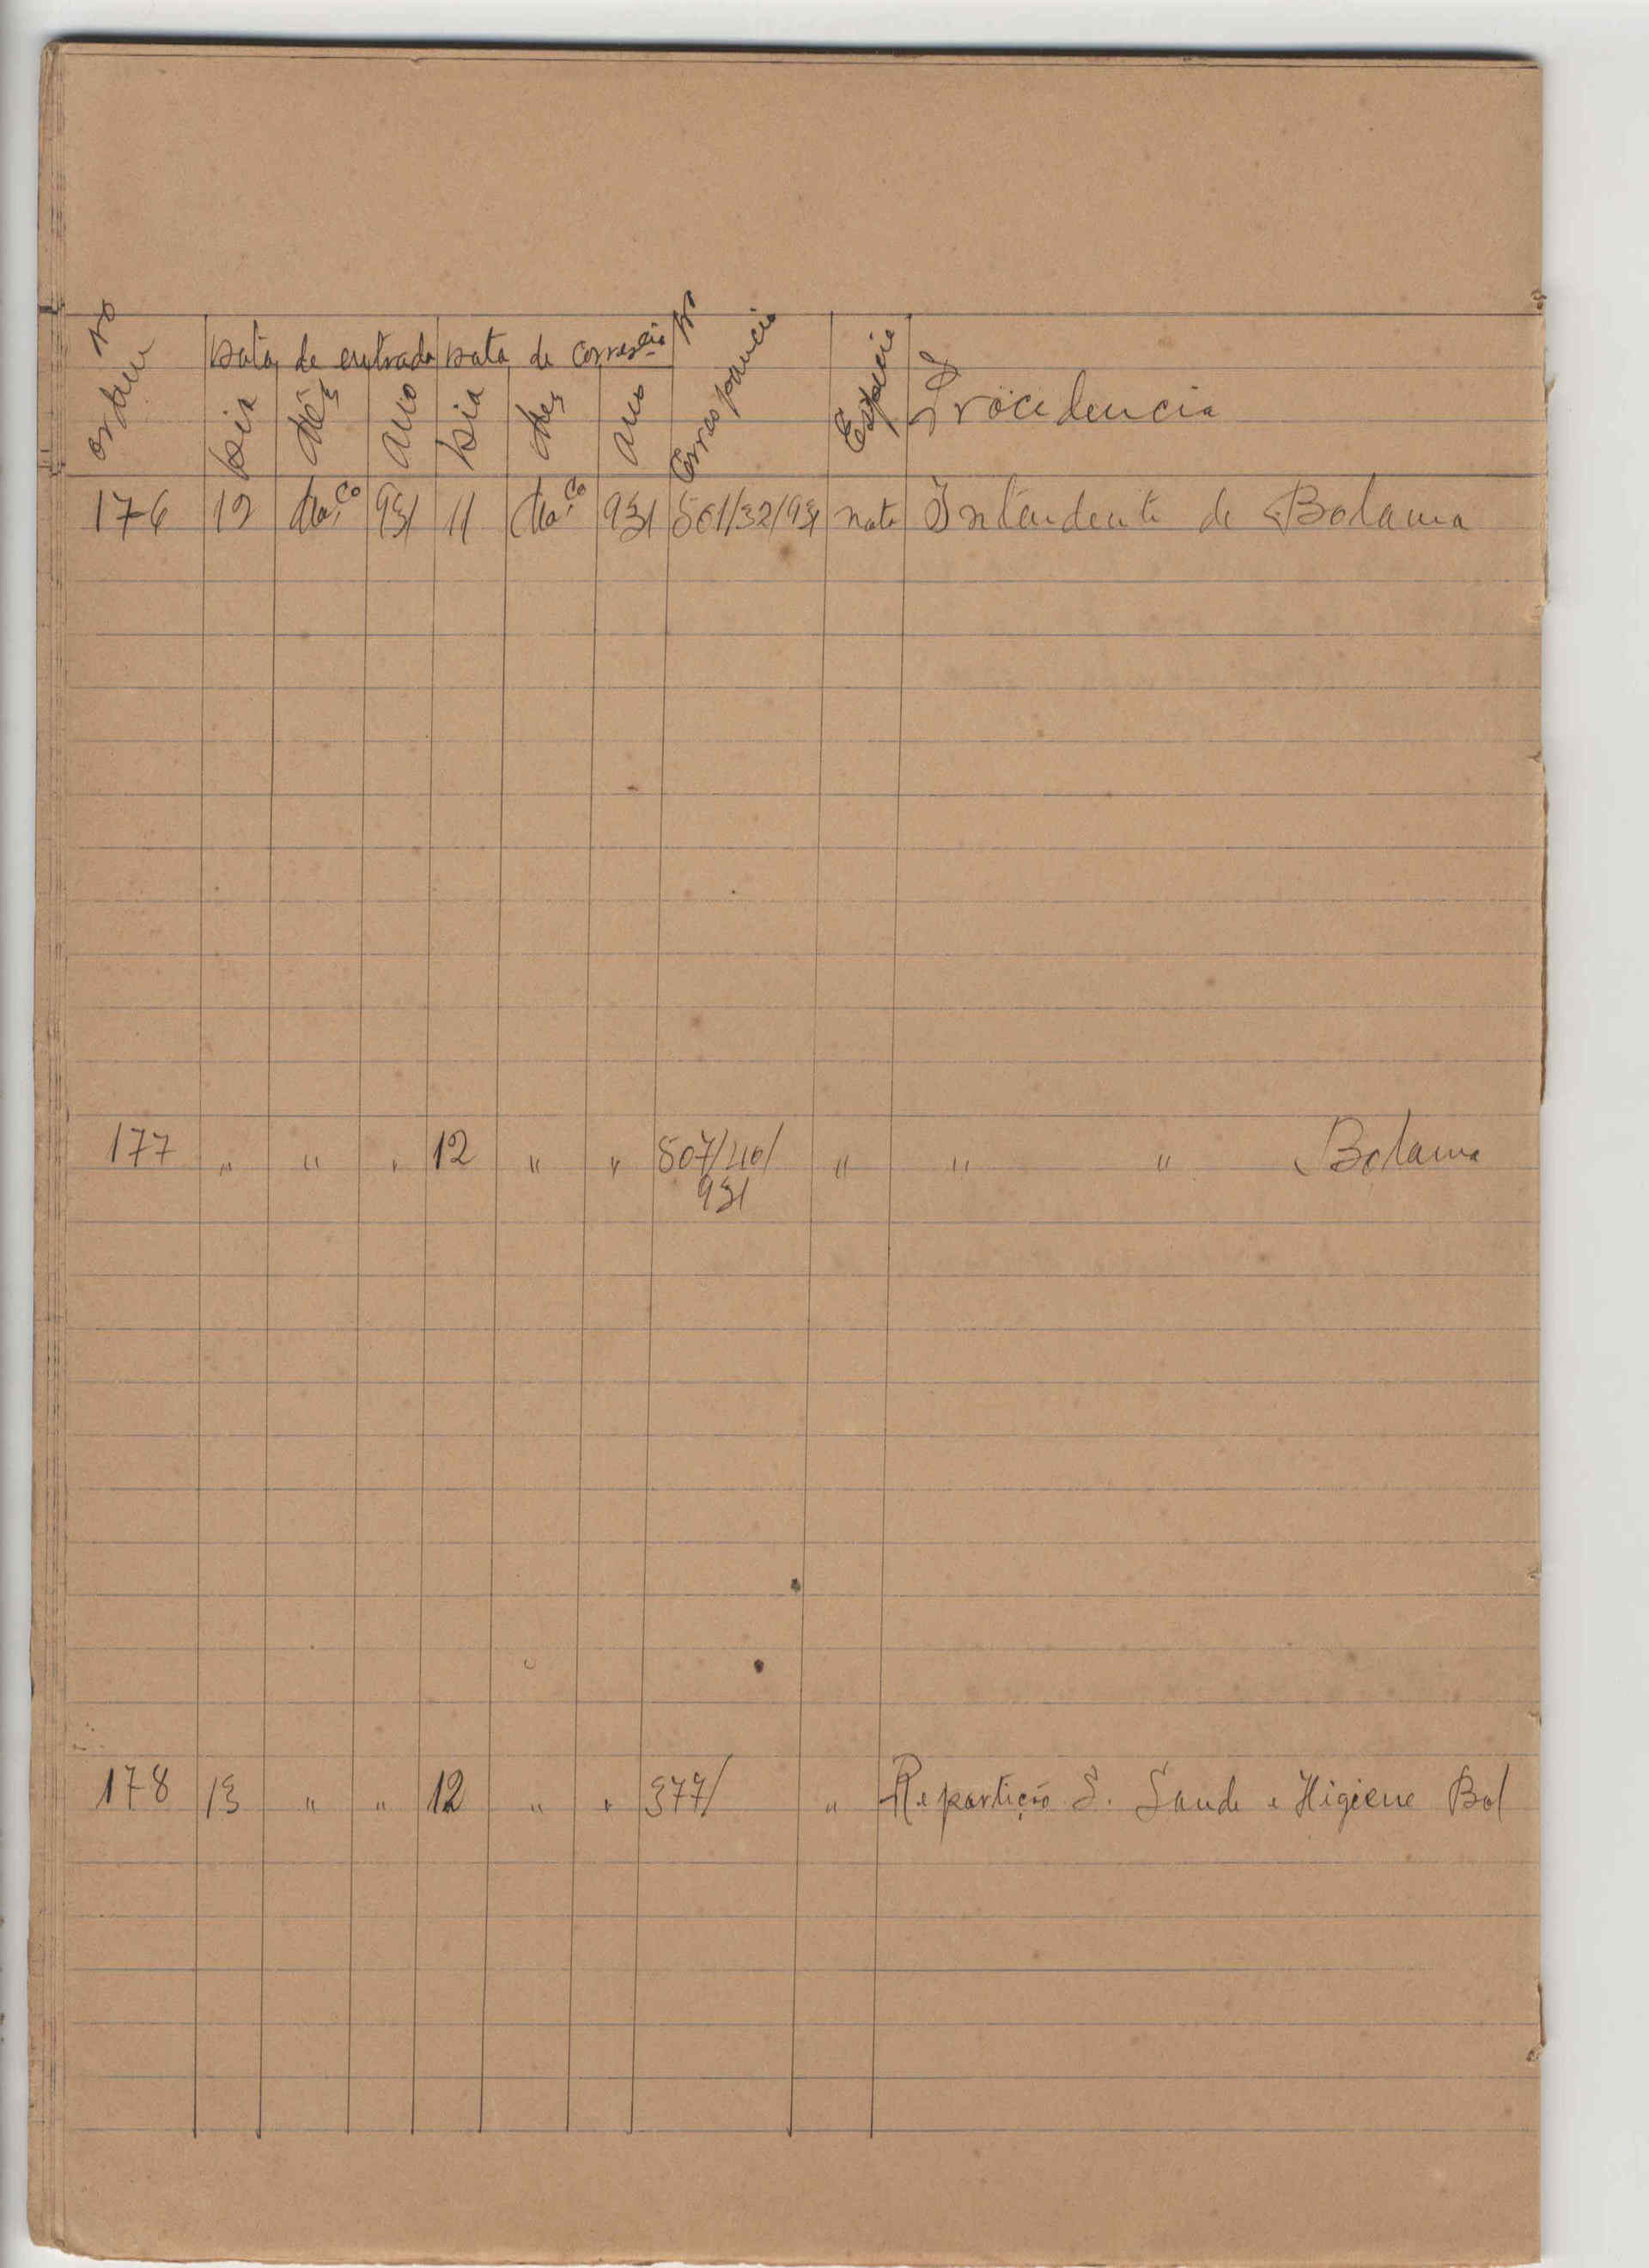 Nº ordem
Data de entrada Data de correscia Nº Correspondencia Especie Procedencia
Dia Mês Ano Dia Mes Ano
176 12 Mar.co 931 11 Mar.co 931 501/32/931 nota Intendente de Bolama
177 " " " 12 " " 507/40/ " " " Bolama
931
178 13 " " 12 " " 377/ " Repartição S. Saude e Higiene Bol